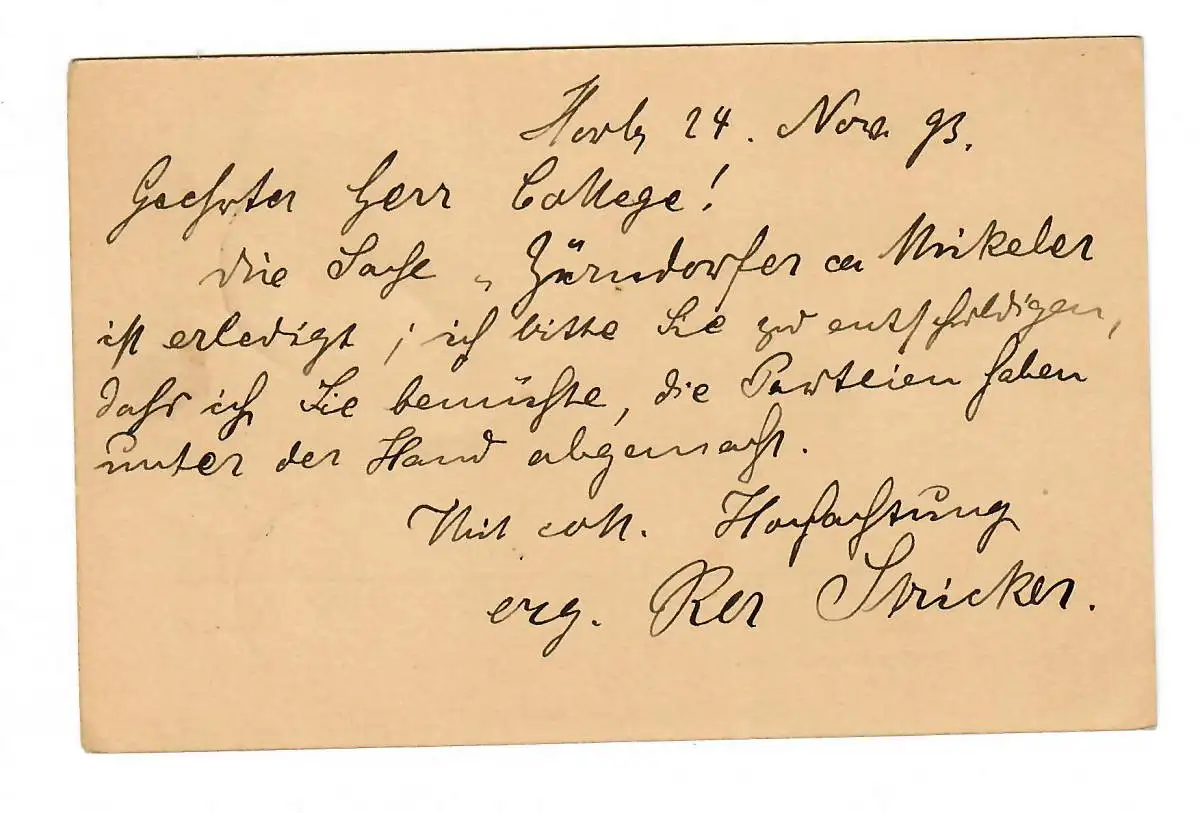 Horb 24. Nov. 93.
Geehrter Herr College!
die Sache „Zürndorfer ca Mükeler
ist erledigt; ich bitte Sie zu entschuldigen,
dass ich Sie bemühte, die Parteien haben
unter der Hand abgemacht.
Mit coll. Hochachtung
erg. Stricker.